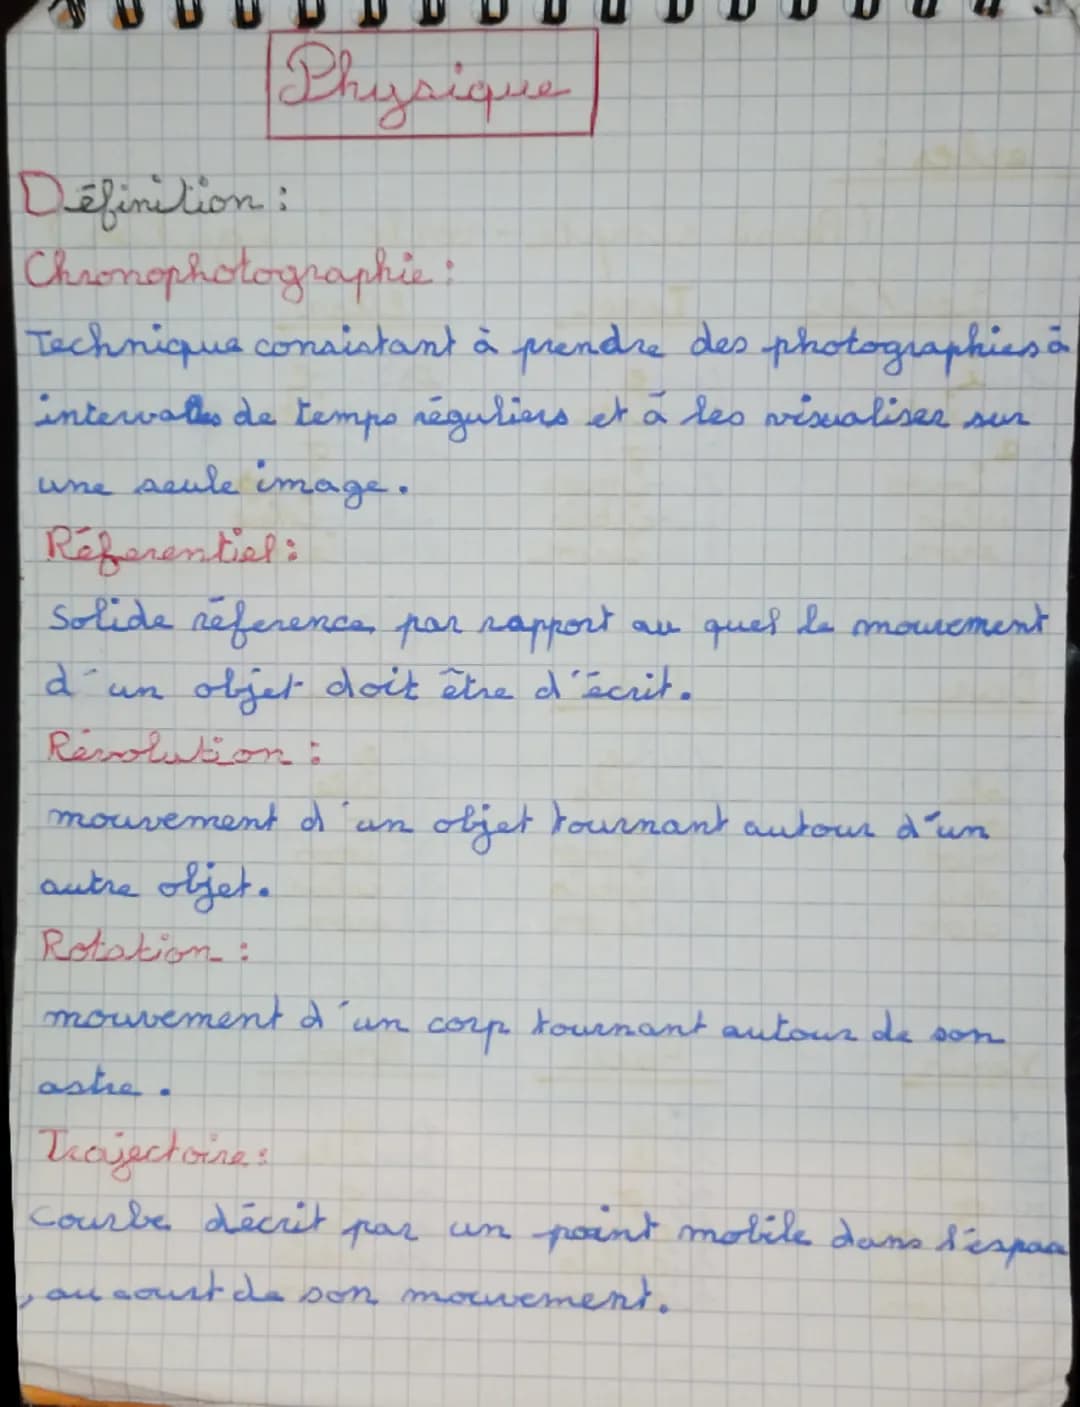 Physique
Définition :
Chronophotographie :
Technique consistant à prendre des photographies à
intervalles de temps réguliers et à les visualiser sur
une seule image.
Réferentiel :
Solide réference par rapport au quel le mouvement
d'un objet doit être d'écrit.
Révolution :
mouvement d'un objet tournant autour d'un
autre objet.
Rotation :
mouvement d'un corp tournant autour de son
astre.
Trajectoire :
Courbe décrit par un point mobile dans l'espace
, au court de son mouvement.